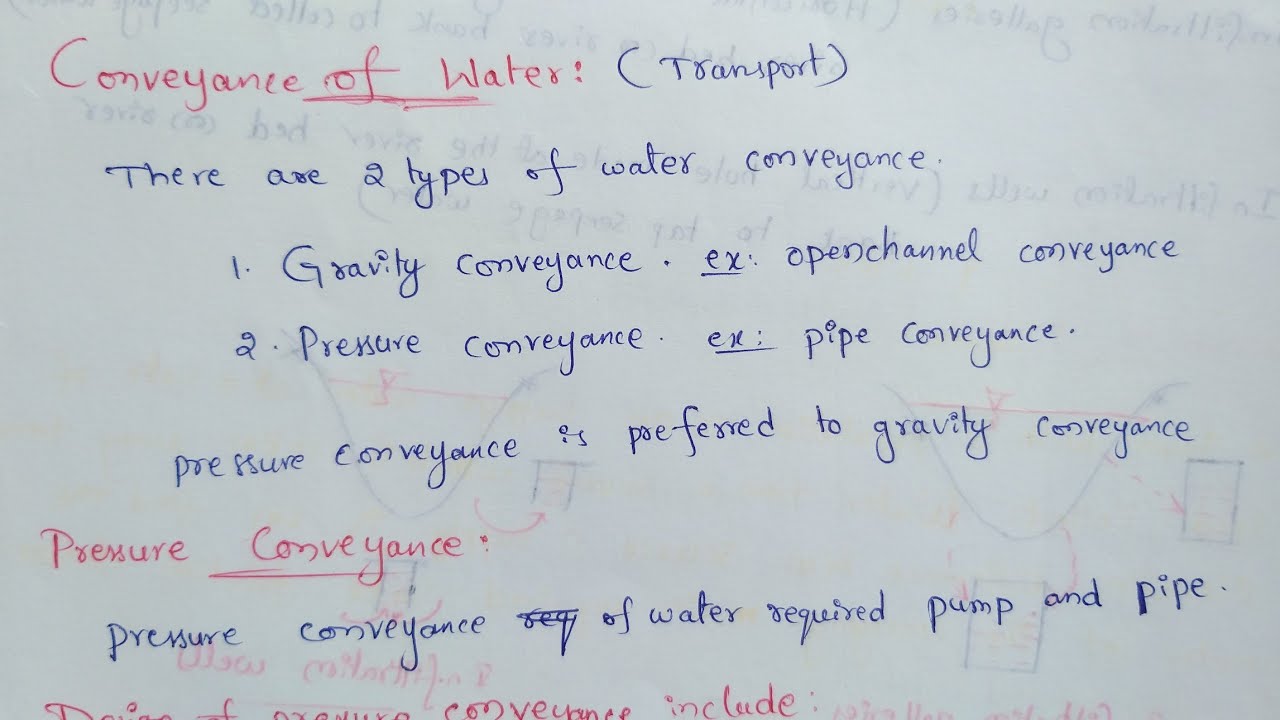 Conveyance of Water: (Transport)
There are 2 types of water conveyance.
1. Gravity conveyance. ex: openchannel conveyance
2. Pressure conveyance. ex: pipe conveyance.
pressure conveyance is preferred to gravity conveyance
Pressure Conveyance:
pressure conveyance req of water required pump and pipe.
Design of pressure conveyance include: